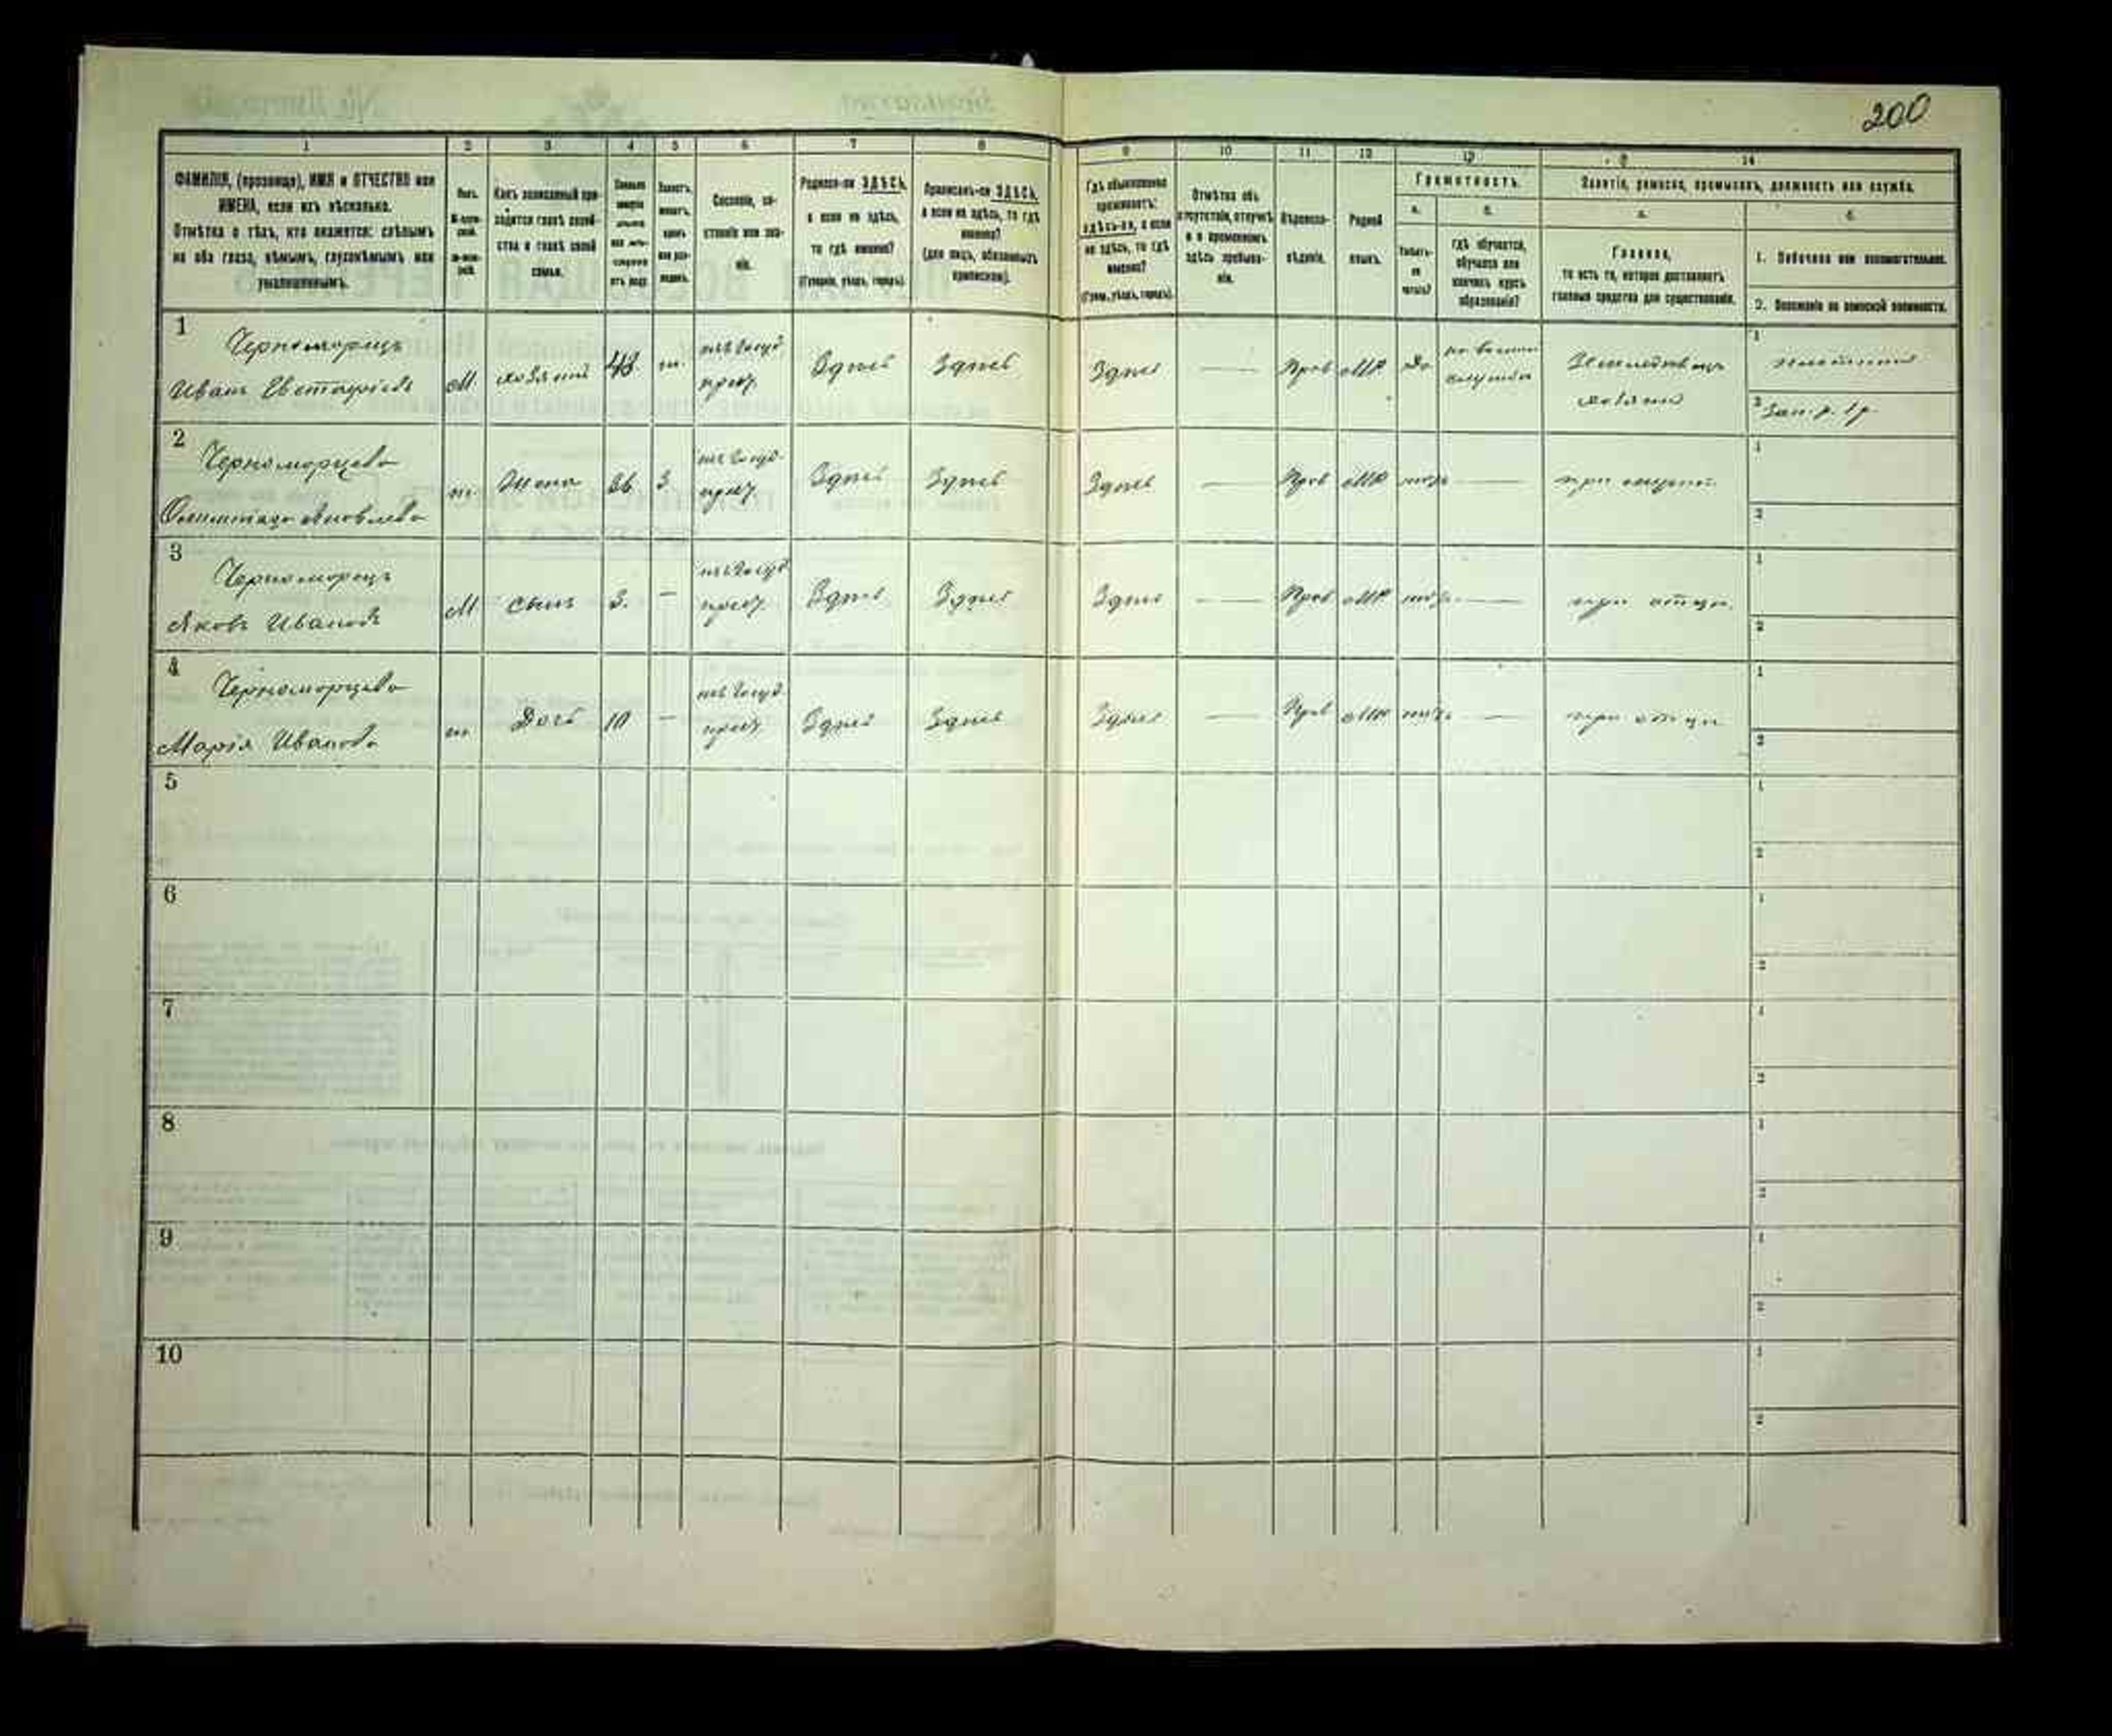 200
1 2 3 4 5 6 7 8 9 10 11 12 13 14
ФАМИЛІЯ, (прозвище), ИМЯ и ОТЧЕСТВО или
ИМЕНА, если ихъ нѣсколько.
Отмѣтка о тѣхъ, кто окажется: слѣпымъ
на оба глаза, нѣмымъ, глухонѣмымъ или
умалишеннымъ.
Полъ.
Какъ записанный при-
ходится главѣ хозяй-
ства и главѣ своей
семьи.
Сословіе, со-
стояніе или зва-
ніе.
Родился-ли ЗДѢСЬ,
а если не здѣсь,
то гдѣ именно?
(Губернія, уѣздъ, городъ).
Приписанъ-ли ЗДѢСЬ,
а если не здѣсь, то гдѣ
именно?
(для лицъ, обязанныхъ
припискою).
Гдѣ обыкновенно
проживаетъ:
здѣсь-ли, а если
не здѣсь, то гдѣ
именно?
(Губер., уѣздъ, городъ).
Отмѣтка объ
отсутствіи, отлучкѣ
и о временномъ
здѣсь пребыва-
ніи.
Вѣроиспо-
вѣданіе.
Родной
языкъ.
Грамотность.
а. б.
Умѣетъ-
ли
читать?
гдѣ обучается,
обучался или
кончилъ курсъ
образованія?
Занятіе, ремесло, промыселъ, должность или служба.
а. б.
Главное,
то есть то, которое доставляетъ
главныя средства для существованія.
1. Побочное или вспомогательное.
2. Положеніе по воинской повинности.
1 Черноморецъ
Иванъ Евстафіевъ
М. хозяинъ 48 ж. изъ госуд. крест. Здѣсь Здѣсь Здѣсь — Прав МР да на военной службѣ Земледѣлецъ хозяинъ
1
2 Зап. р. 1 р.
2 Черноморцева
Яковлева
ж Жена 36 з. изъ госуд. крест. Здѣсь Здѣсь Здѣсь — Прав МР нѣтъ — при мужѣ
1
2
3 Черноморецъ
Яковъ Ивановъ
М сынъ 3. — изъ госуд. крест. Здѣсь Здѣсь Здѣсь — Прав МР нѣтъ — при отцѣ
1
2
4 Черноморцева
Марія Иванова
ж Дочь 10 — изъ госуд. крест. Здѣсь Здѣсь Здѣсь — Прав МР нѣтъ — при отцѣ
1
2
5
1
2
6
1
2
7
1
2
8
1
2
9
1
2
10
1
2